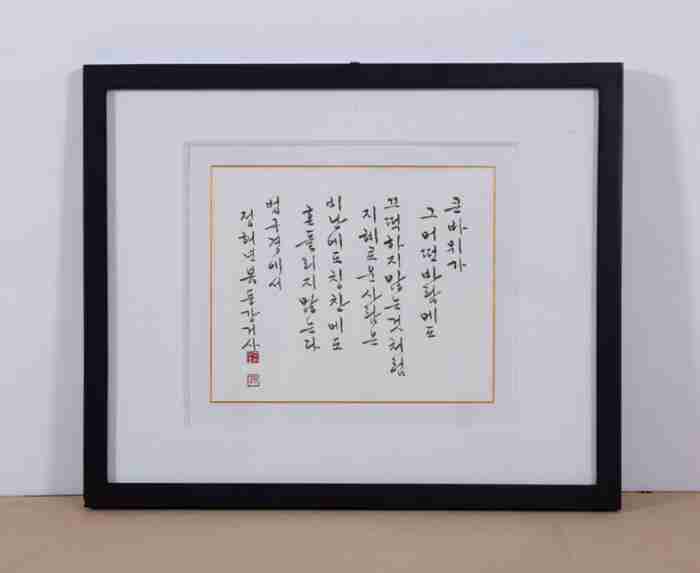 큰바위가
그어떤바람에도
끄떡하지않는것처럼
지혜로운사람은
비난에도칭찬에도
흔들리지않는다
법구경에서
정해년봄둔강거사